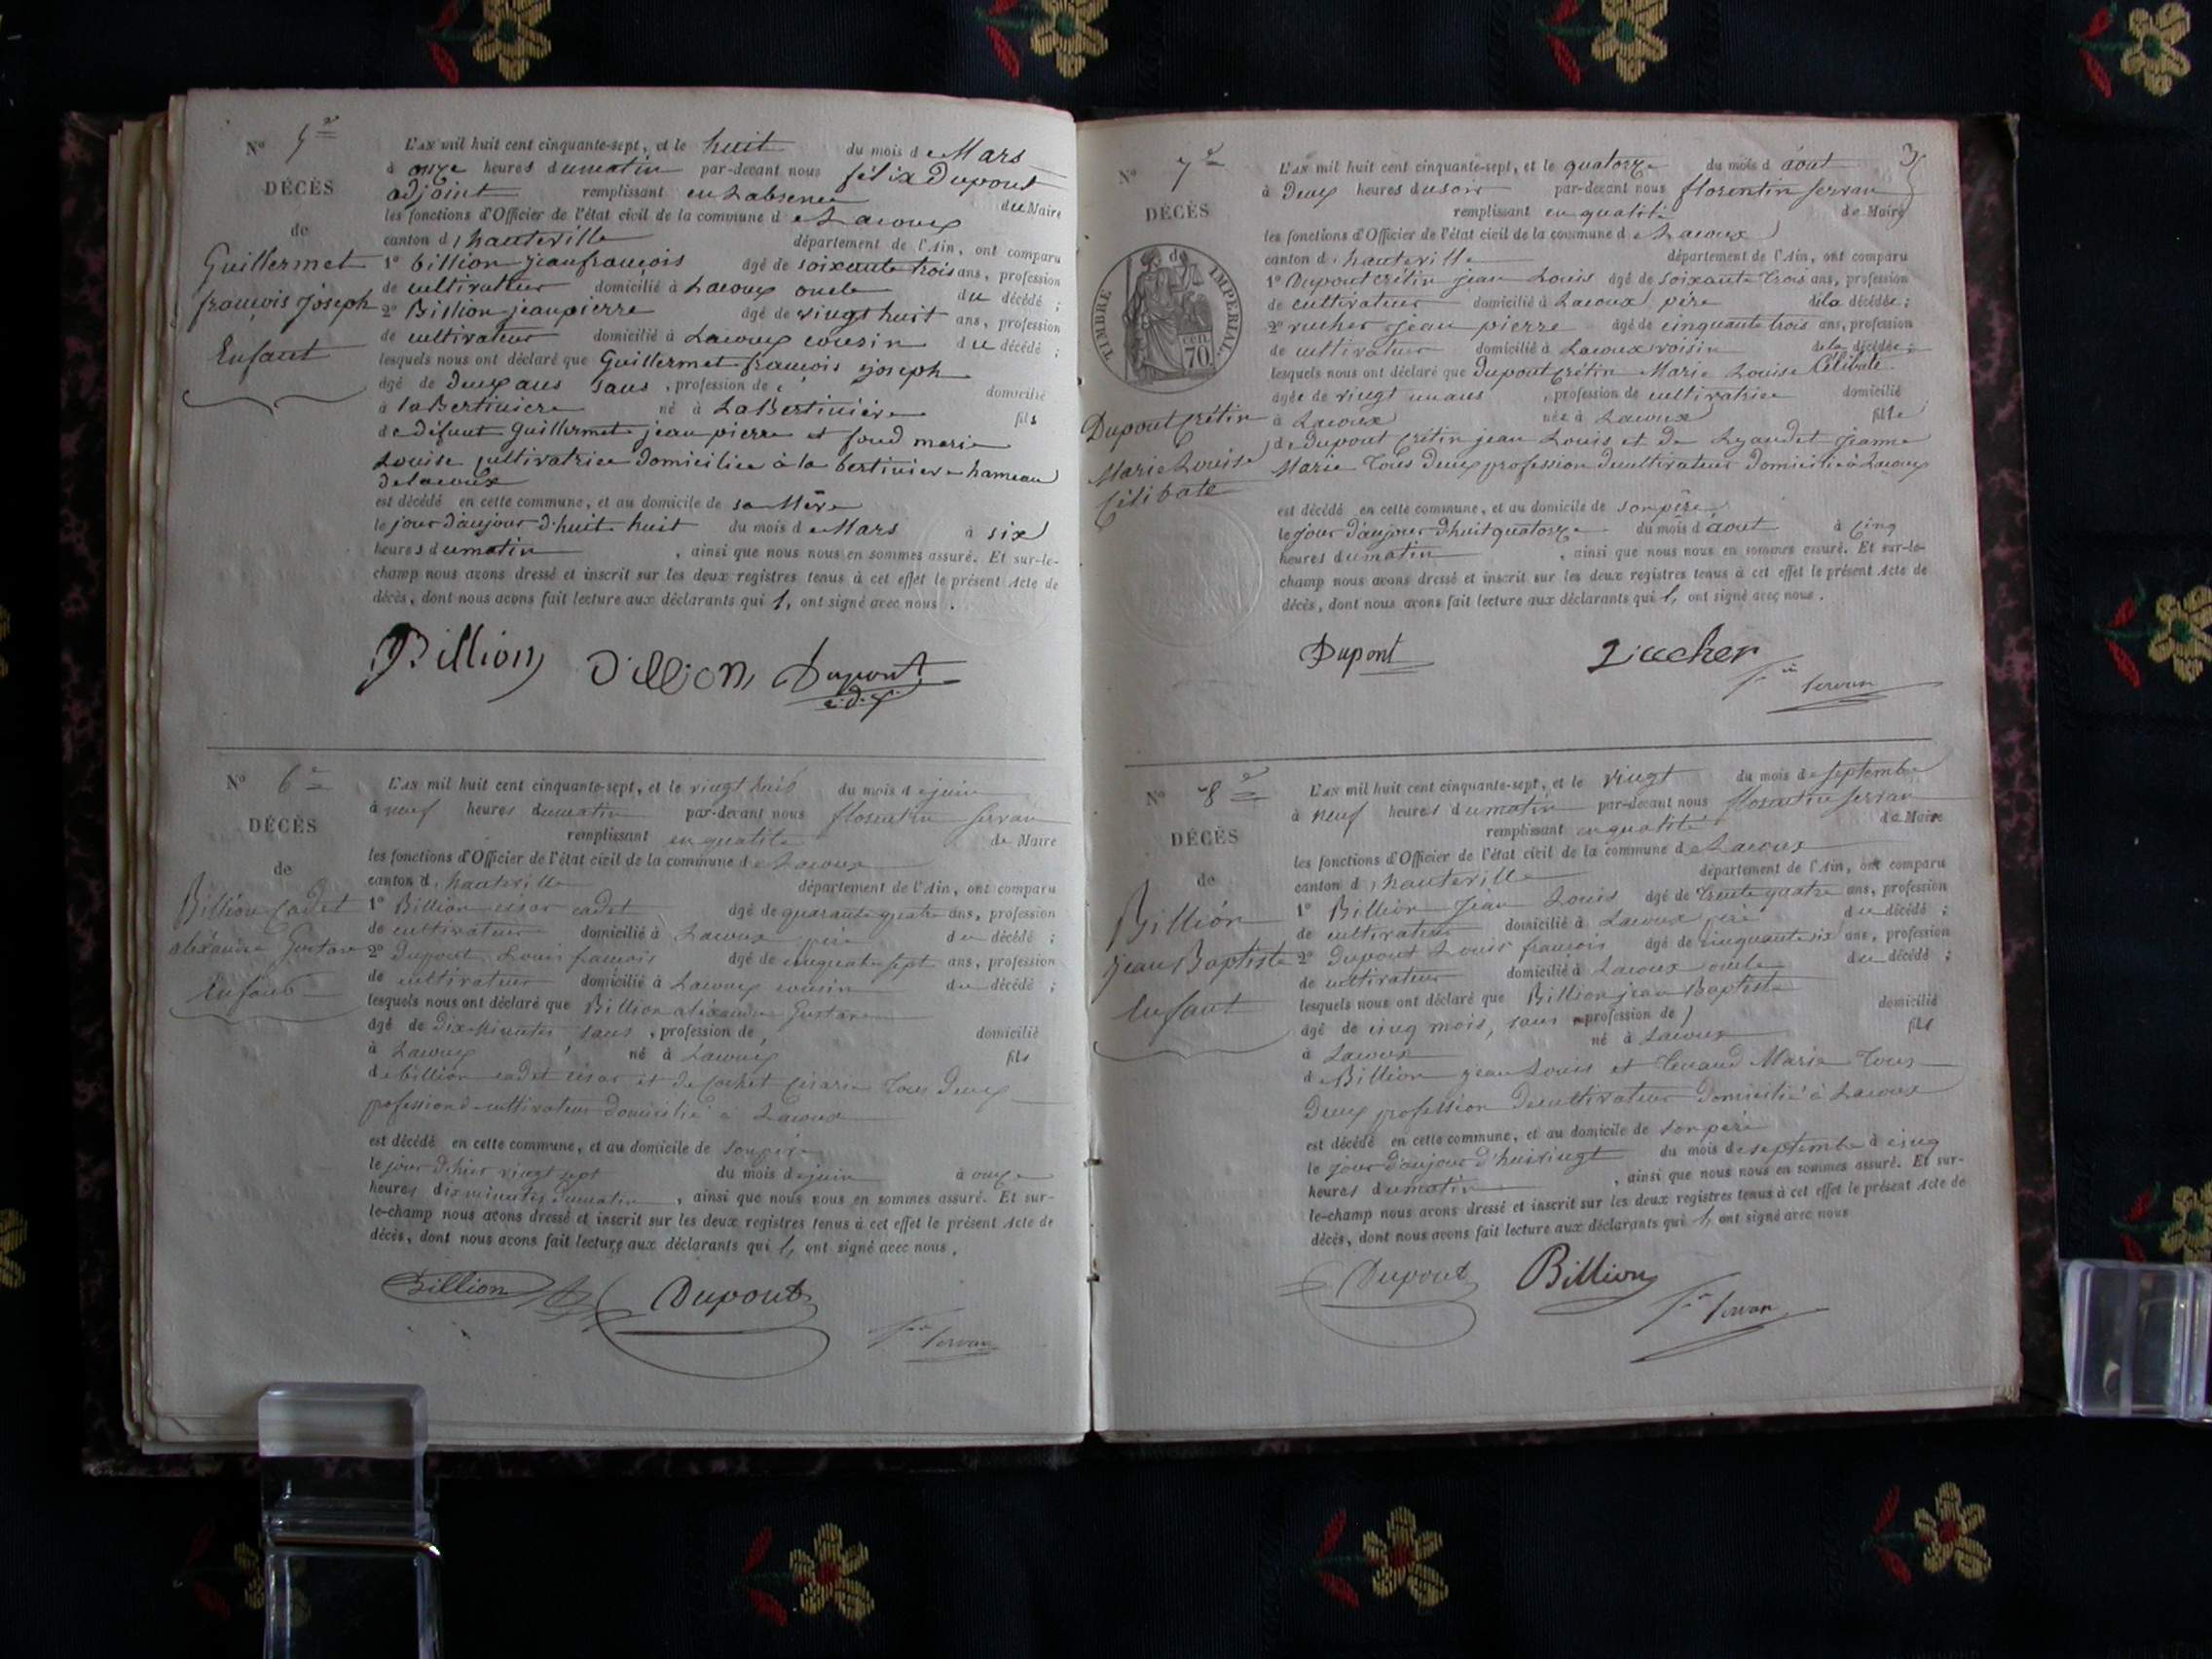 N° 5e
DÉCÈS
de
Guillermet
françois joseph
Enfant
L'AN mil huit cent cinquante-sept, et le huit du mois de Mars
à onze heures du matin par-devant nous félix Dupont
adjoint remplissant en Labsence du Maire
les fonctions d'Officier de l'état civil de la commune de Lacoux
canton d, hauteville département de l'Ain, ont comparu
1° billion jean françois âgé de soixante trois ans, profession
de cultivateur domicilié à Lacoux oncle du décédé ;
2° Billion jean pierre âgé de vingt huit ans, profession
de cultivateur domicilié à Lacoux cousin du décédé ;
lesquels nous ont déclaré que Guillermet françois joseph
âgé de Deux ans sans , profession de , domicilié
à la Bertiniere né à La Bertinière fils
de défunt Guillermet jean pierre et fond marie
Louise cultivatrice domicilice à la bertiniere hameau
de lacoux
est décédé en cette commune, et au domicile de sa Mère
le jour d'aujour d'huit huit du mois de Mars à six
heures du matin , ainsi que nous nous en sommes assuré. Et sur-le-
champ nous avons dressé et inscrit sur les deux registres tenus à cet effet le présent Acte de
décès, dont nous avons fait lecture aux déclarants qui l, ont signé avec nous .
Billion Billion Dupont
adj.
N° 6e
DÉCÈS
de
Billion Cadet
aléxandre Gustave
Enfant
L'AN mil huit cent cinquante-sept, et le vingt huit du mois de juin
à neuf heures du matin par-devant nous florentin Servan
remplissant en qualité de Maire
les fonctions d'Officier de l'état civil de la commune de Lacoux
canton d, hauteville département de l'Ain, ont comparu
1° Billion césar cadet âgé de quarante quatre ans, profession
de cultivateur domicilié à Lacoux père du décédé ;
2° Dupont Louis francois âgé de cinquante sept ans, profession
de cultivateur domicilié à Lacoux cousin du décédé ;
lesquels nous ont déclaré que Billion aléxandre Gustave
âgé de Dix Minutes sans , profession de , domicilié
à Lacoux , né à Lacoux fils
de billion cadet césar et de Césarie Tous Deux
profession de cultivateur domicilié à Lacoux
est décédé en cette commune, et au domicile de Son père
le jour d'hier vingt sept du mois de juin à onze
heures dix minutes du matin , ainsi que nous nous en sommes assuré. Et sur-
le-champ nous avons dressé et inscrit sur les deux registres tenus à cet effet le présent Acte de
décès, dont nous avons fait lecture aux déclarants qui l, ont signé avec nous .
Billion Dupont
Servan
3
N° 7e
DÉCÈS
de
TIMBRE IMPERIAL
70 cen.
Dupont Crétin
Marie Louise
Célibate
L'AN mil huit cent cinquante-sept, et le quatorze du mois d aout
à Deux heures du soir par-devant nous florentin Servan
remplissant en qualité de Maire
les fonctions d'Officier de l'état civil de la commune de Lacoux
canton d, hauteville département de l'Ain, ont comparu
1° Dupont crétin jean Louis âgé de soixante Trois ans, profession
de cultivateur domicilié à Lacoux père de la décédée ;
2° rucher jean pierre âgé de cinquante trois ans, profession
de cultivateur domicilié à Lacoux voisin de la décédée ;
lesquels nous ont déclaré que Dupont Crétin Marie Louise Célibate
âgée de vingt un ans , profession de cultivatrice domicilié
à Lacoux née à Lacoux fille
de dupont Crétin jean Louis et de Lyaudet jeanne
Marie Tous deux profession de cultivateur domicilié à Lacoux
est décédé en cette commune, et au domicile de son père
le jour d'aujour d'huit quatorze du mois d aout à cinq
heures du matin , ainsi que nous nous en sommes assuré. Et sur-le-
champ nous avons dressé et inscrit sur les deux registres tenus à cet effet le présent Acte de
décès, dont nous avons fait lecture aux déclarants qui l, ont signé avec nous .
Dupont Rucher
Servan
N° 8e
DÉCÈS
de
Billion
jean Baptiste
Enfant
L'AN mil huit cent cinquante-sept, et le vingt du mois de septembre
à neuf heures du matin par-devant nous florentin Servan
remplissant en qualité de Maire
les fonctions d'Officier de l'état civil de la commune de Lacoux
canton d, hauteville département de l'Ain, ont comparu
1° Billion jean Louis âgé de trente quatre ans, profession
de cultivateur domicilié à Lacoux père du décédé ;
2° Dupont Louis francois âgé de cinquante six ans, profession
de cultivateur domicilié à Lacoux oncle du décédé ;
lesquels nous ont déclaré que Billion jean Baptiste
âgé de cinq mois, sans profession de , domicilié
à Lacoux né à Lacoux fils
de Billion jean Louis et Marie Tous
Deux profession de cultivateur domicilié à Lacoux
est décédé en cette commune, et au domicile de son père
le jour d'aujour d'hui vingt du mois de septembre à cinq
heures du matin , ainsi que nous nous en sommes assuré. Et sur-
le-champ nous avons dressé et inscrit sur les deux registres tenus à cet effet le présent Acte de
décès, dont nous avons fait lecture aux déclarants qui l, ont signé avec nous
Dupont Billion
Servan